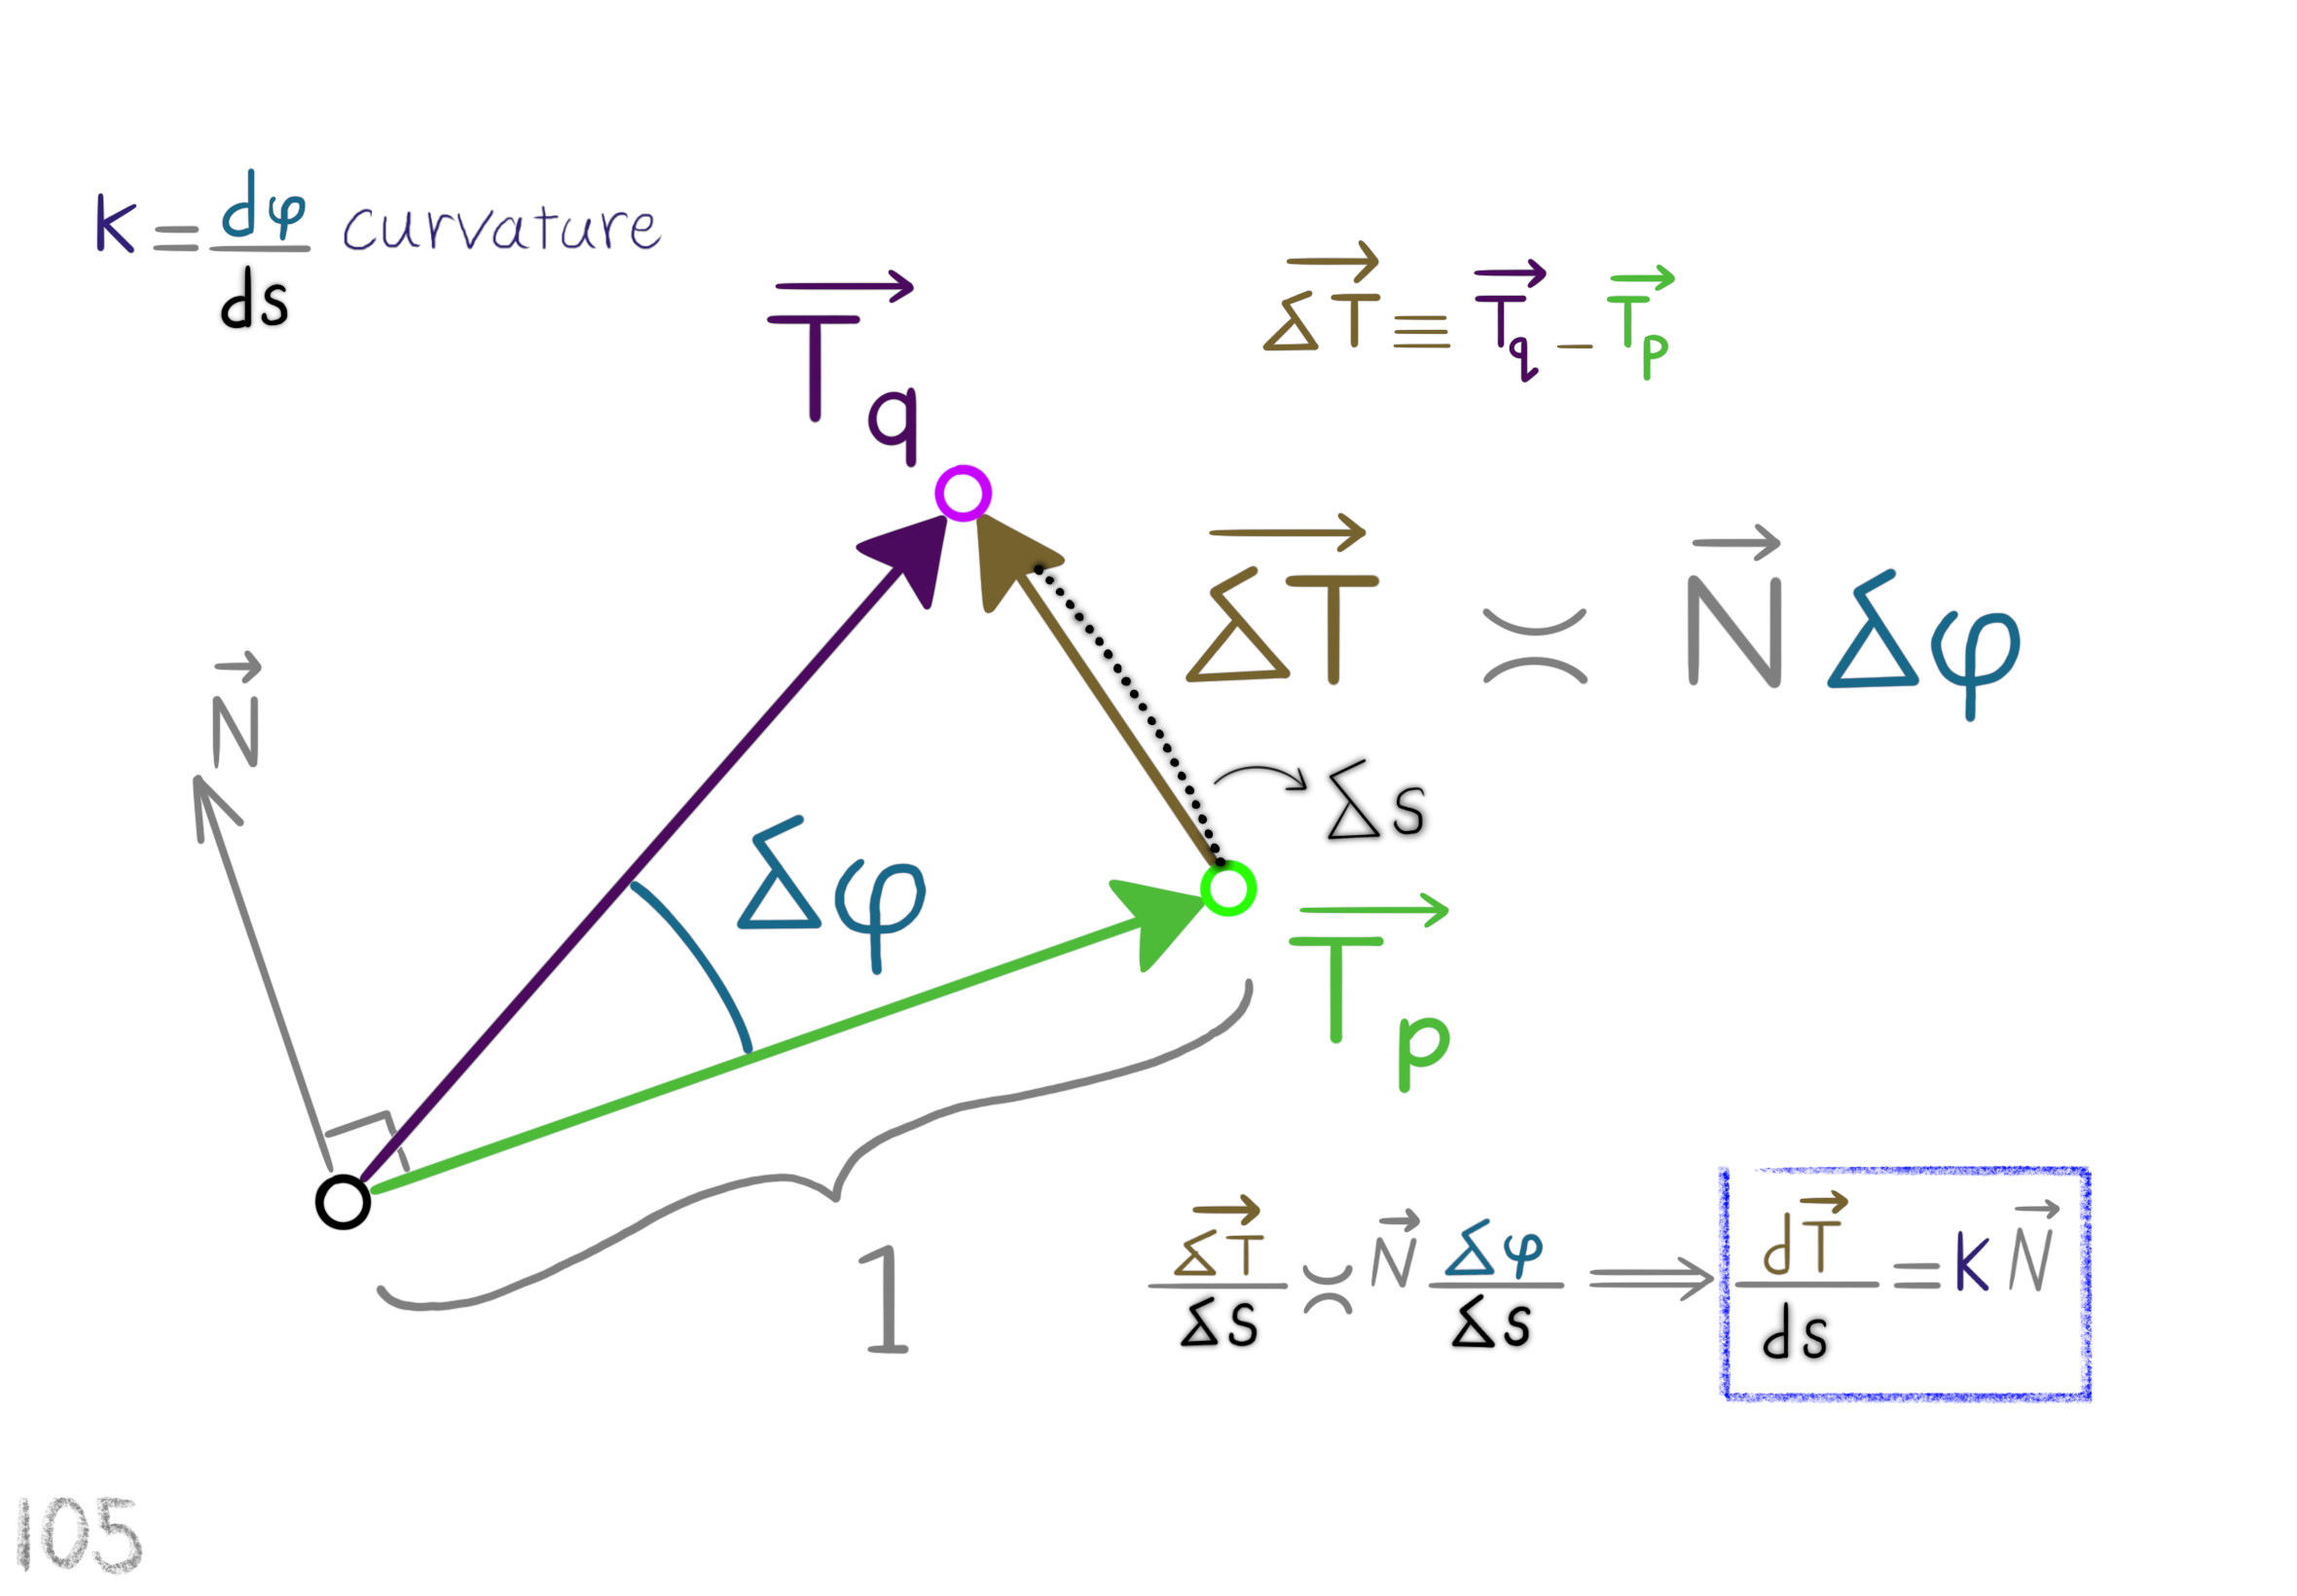 K = dφ/ds curvature
ΔT⃗ ≡ T⃗q - T⃗p
T⃗q
ΔT⃗ ≍ N⃗ Δφ
N⃗
Δs
Δφ
T⃗p
1
ΔT⃗/Δs ≍ N⃗ Δφ/Δs ⟹ dT⃗/ds = K N⃗
105